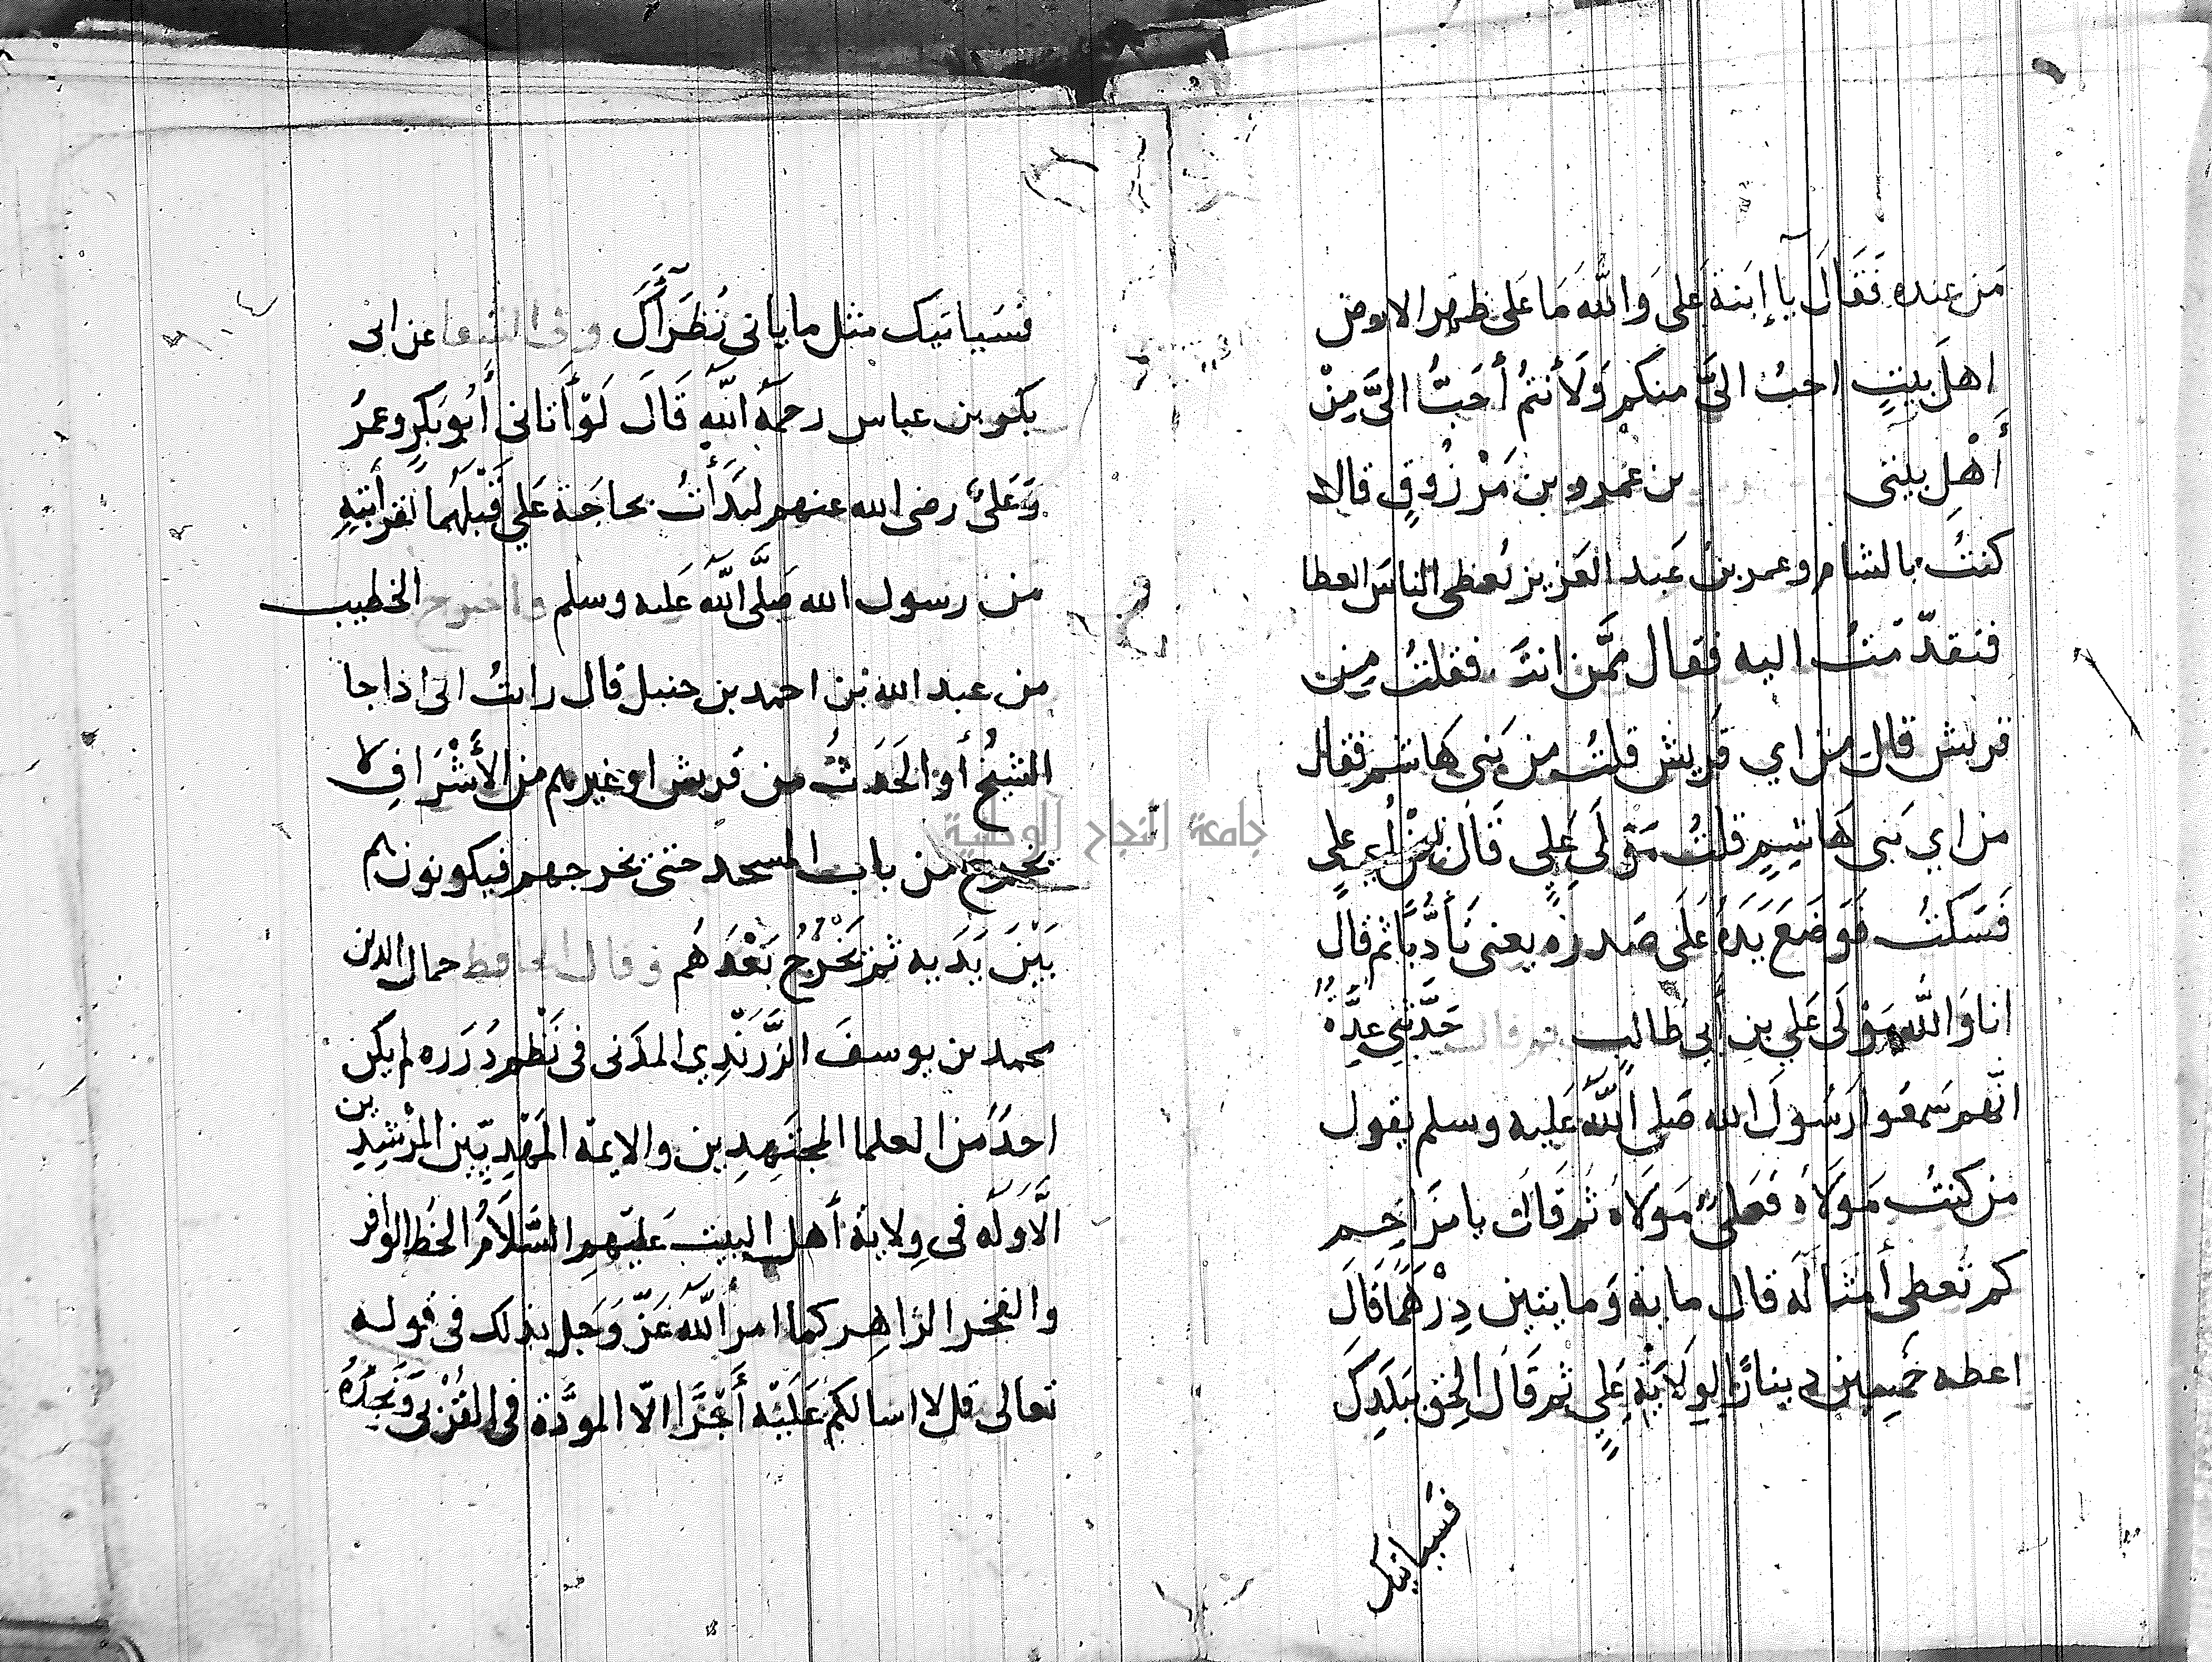 من عنده فَقَالَ يآ إبنة عَلى وَاللّه مَا عَلى ظهر الارض
اهل بيتٍ احبُ الىَّ منكم وَلَأنتمُ أحَبُّ الىَّ مِنْ
أهْلِ بيتى بن عمرو بن مَرْزُوقٍ قالا
كنتُ بالشام وعمر بن عَبد العَزيز يُعطى الناسَ العطا
فتقدّمتُ اليه فقال ممَّن انتَ فقلتُ مِن
قريش قال من اي قريش قلتُ من بَنى هَاشم فقال
من اي بَنى هَاشِمٍ قلتُ مَوْلَى عَلِي قَال مَنْ أي علي
فَسَكتُ فَوَضَعَ يَدَهُ عَلَى صَدره يعنى تَأدُّبًا ثم قال
انا وَاللَّه مَوْلَى عَلي بنِ أبي طَالبٍ ثم قال حَدَّثَنِي عِدَّةٌ
انّهم سَمِعُوا رَسُولَ الله صَلى اللَّهُ عَليه وسلم يقول
من كنتُ مَوْلَاهُ فَعَلىٌّ مَوْلَاهُ ثم قَالَ يا مزَاحِم
كم تعطى أمثَالَه قال مايةً وَمايتين دِرْهَمًا قَالَ
اعطه خَمسِين دينارًا لِوِلَايَةِ عَلِيٍ ثم قَالَ الحِق بَبلَدِكَ
فسيأتيك
فسَيأتيك مثل ما يأتى نُظَرَآءَكَ وفى الشفا عن ابى
بكر بن عياش رحمهُ اللّه قَالَ لَوْ أتانى أبُو بَكرٍ وعمرُ
وَعَلىٌّ رضى الله عنهم لبَدَأتُ بحاجَة عَلي قَبْلَهُما لقرابَتِهِ
من رسول الله صَلَّى اللَّه عَليه وسلم واخرج الخطيب
من عبد الله بن احمد بن حنبل قال رايتُ ابى اذا جا
الشيخُ أو الحَدَثُ من قريش او غيرهم من الأَشْرَافِ لا
يخرج من باب المسجد حتى يخرجهم فيكونون هم
بَيْنَ يَدَيه ثم يَخْرُجُ بَعْدَهُم وقال الحافظ جمال الدين
محمد بن يوسفَ الزَّرَنْدِي المدَنى فى نَظْم دُرَره لم يكن
احدٌ من العلما المجتَهِدِين والايمة المَهْدِيّين المرْشِدِين
الَّا وَلَه فى وِلاية أهل البيت عَليْهم السَّلَامُ الحَظ الوافر
والفخر الزاهِر كما امر اللَّه عَزّ وَجَل بذلك فى قوله
تعالى قل لا اسالكم عَلَيْه أجْرًا الّا الموَدَّة فى القُرْبَى وَنجِدُهُ